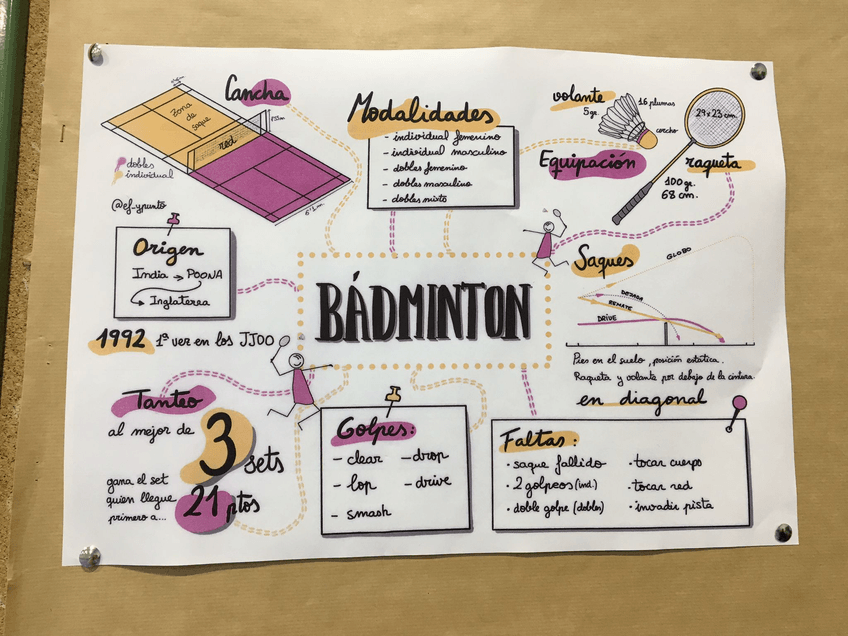 Cancha
zona
de
saque
red
1'55m
6'1m
dobles
individual
@ef_ypunto
Modalidades
- individual femenino
- individual masculino
- dobles femenino
- dobles masculino
- dobles mixto
volante
5gr.
16 plumas
corcho
29 x 23 cm.
Equipación
raqueta
100gr.
68 cm.
Origen
India → POONA
Inglaterra
1992 1ª ver en los JJOO
BÁDMINTON
Saques
GLOBO
REMATE
DRIVE
Pies en el suelo, posición estática.
Raqueta y volante por debajo de la cintura
en diagonal
Tanteo
al mejor de
3
sets
gana el set
quien llegue
primero a...
21 ptos
Golpes:
- clear
- drop
- lop
- drive
- smash
Faltas:
· saque fallido
· 2 golpeos (ind.)
· doble golpe (dobles)
· tocar cuerpo
· tocar red
· invadir pista